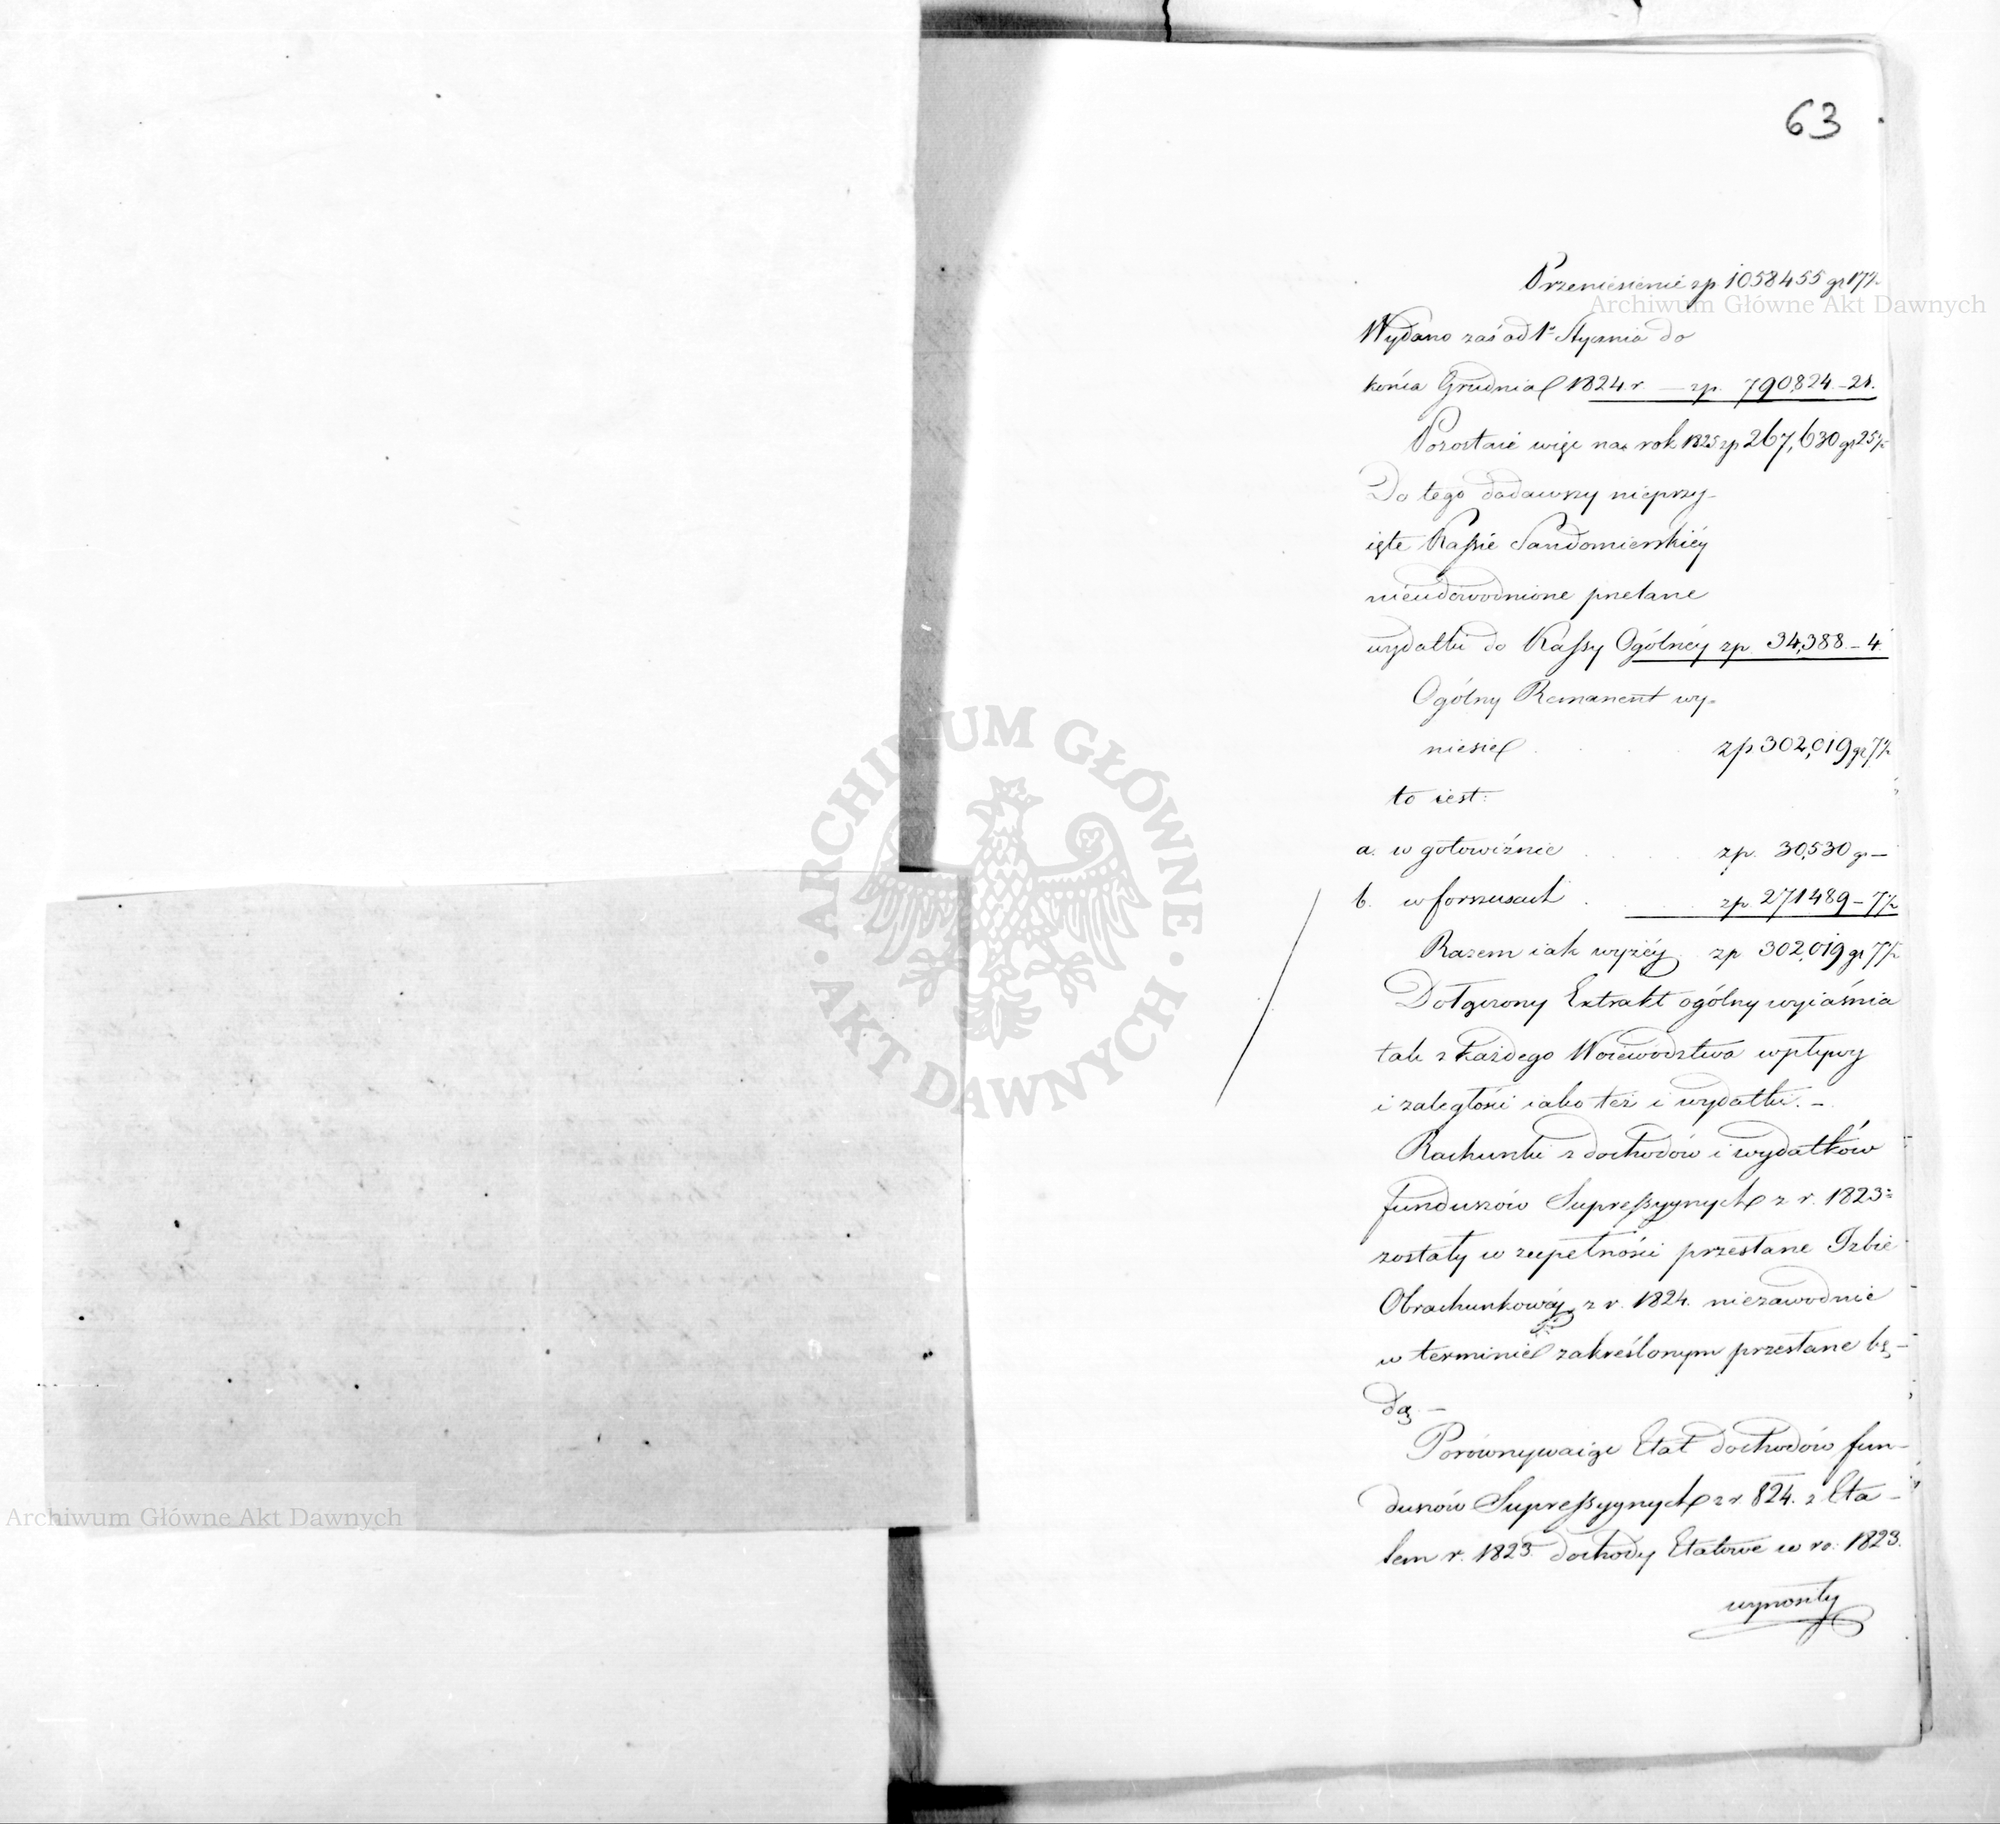 63
Przeniesienie zp. 1058455 gr 17½
Archiwum Główne Akt Dawnych
Wydano zaś od 1º Stycznia do
końca Grudnia 1824 r. — zp. 790,824 – 21.
Pozostaie więc na rok 1825 zp 267,630 gr 25½
Do tego dodawszy nieprzy-
ięte Kassie Sandomierskiéy
nieudowodnione przelane
wydatki do Kassy Ogólnéy zp. 34,388. – 4.
Ogólny Remanent wy-
niesie zp. 302,019 gr 7½
to iest:
a. w gotowiźnie zp. 30,530 gr –
b. w forszusach zp. 271489 – 7½
Razem iak wyżéy zp 302,019 gr 7½
Dołączony Extrakt ogólny wyiaśnia
tak z każdego Woiewództwa wpływy
i zaległości iako też i wydatki. –
Rachunki z dochodów i wydatków
funduszów Supressyynych z r. 1823
zostały w zupełności przesłane Izbie
Obrachunkowéy, z r. 1824. niezawodnie
w terminie zakreślonym przesłane bę-
dą. –
Porównywaiąc Etat dochodów fun-
duszów Supressyynych z r. 824. z Eta-
tem r. 1823. dochody Etatowe w ro: 1823.
wynosiły
ARCHIWUM GŁÓWNE
AKT DAWNYCH
Archiwum Główne Akt Dawnych